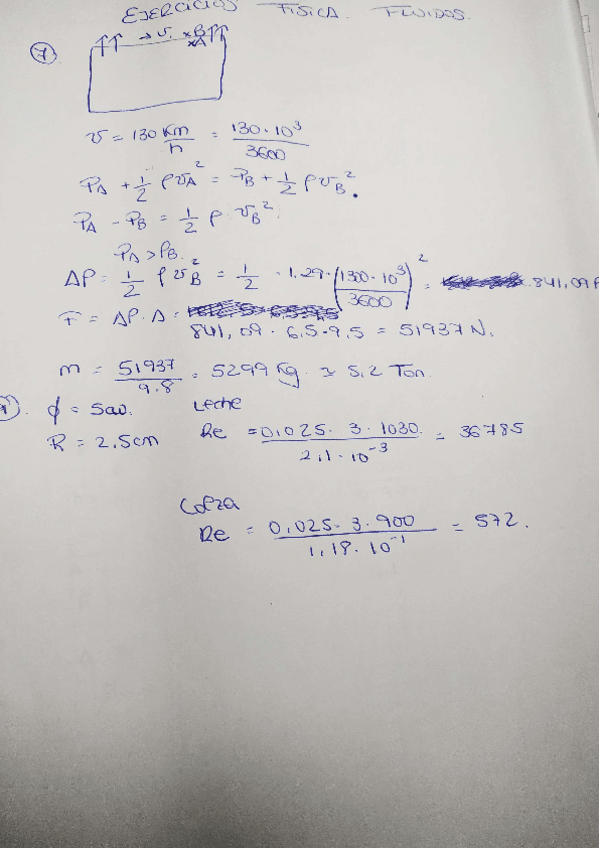 EJERCICIOS FISICA. FLUIDOS.
→ v. xB
xA
7
v = 130 Km/h = 130·10³/3600
PA + 1/2 ρ vA² = PB + 1/2 ρ vB².
PA - PB = 1/2 ρ vB².
PA > PB.
ΔP = 1/2 ρ vB² = 1/2 · 1,29 · (1300·10³/3600)² = 841,09 P
F = ΔP·A =
841,09 · 6,5 · 9,5 = 51937 N.
m = 51937/9.8 = 5299 Kg ≈ 5,2 Ton.
φ = 5cm. Leche
R = 2,5cm Re = 0,025 · 3 · 1030/2,1·10⁻³ = 36785
Colza
Re = 0,025 · 3 · 900/1,18·10⁻¹ = 572.